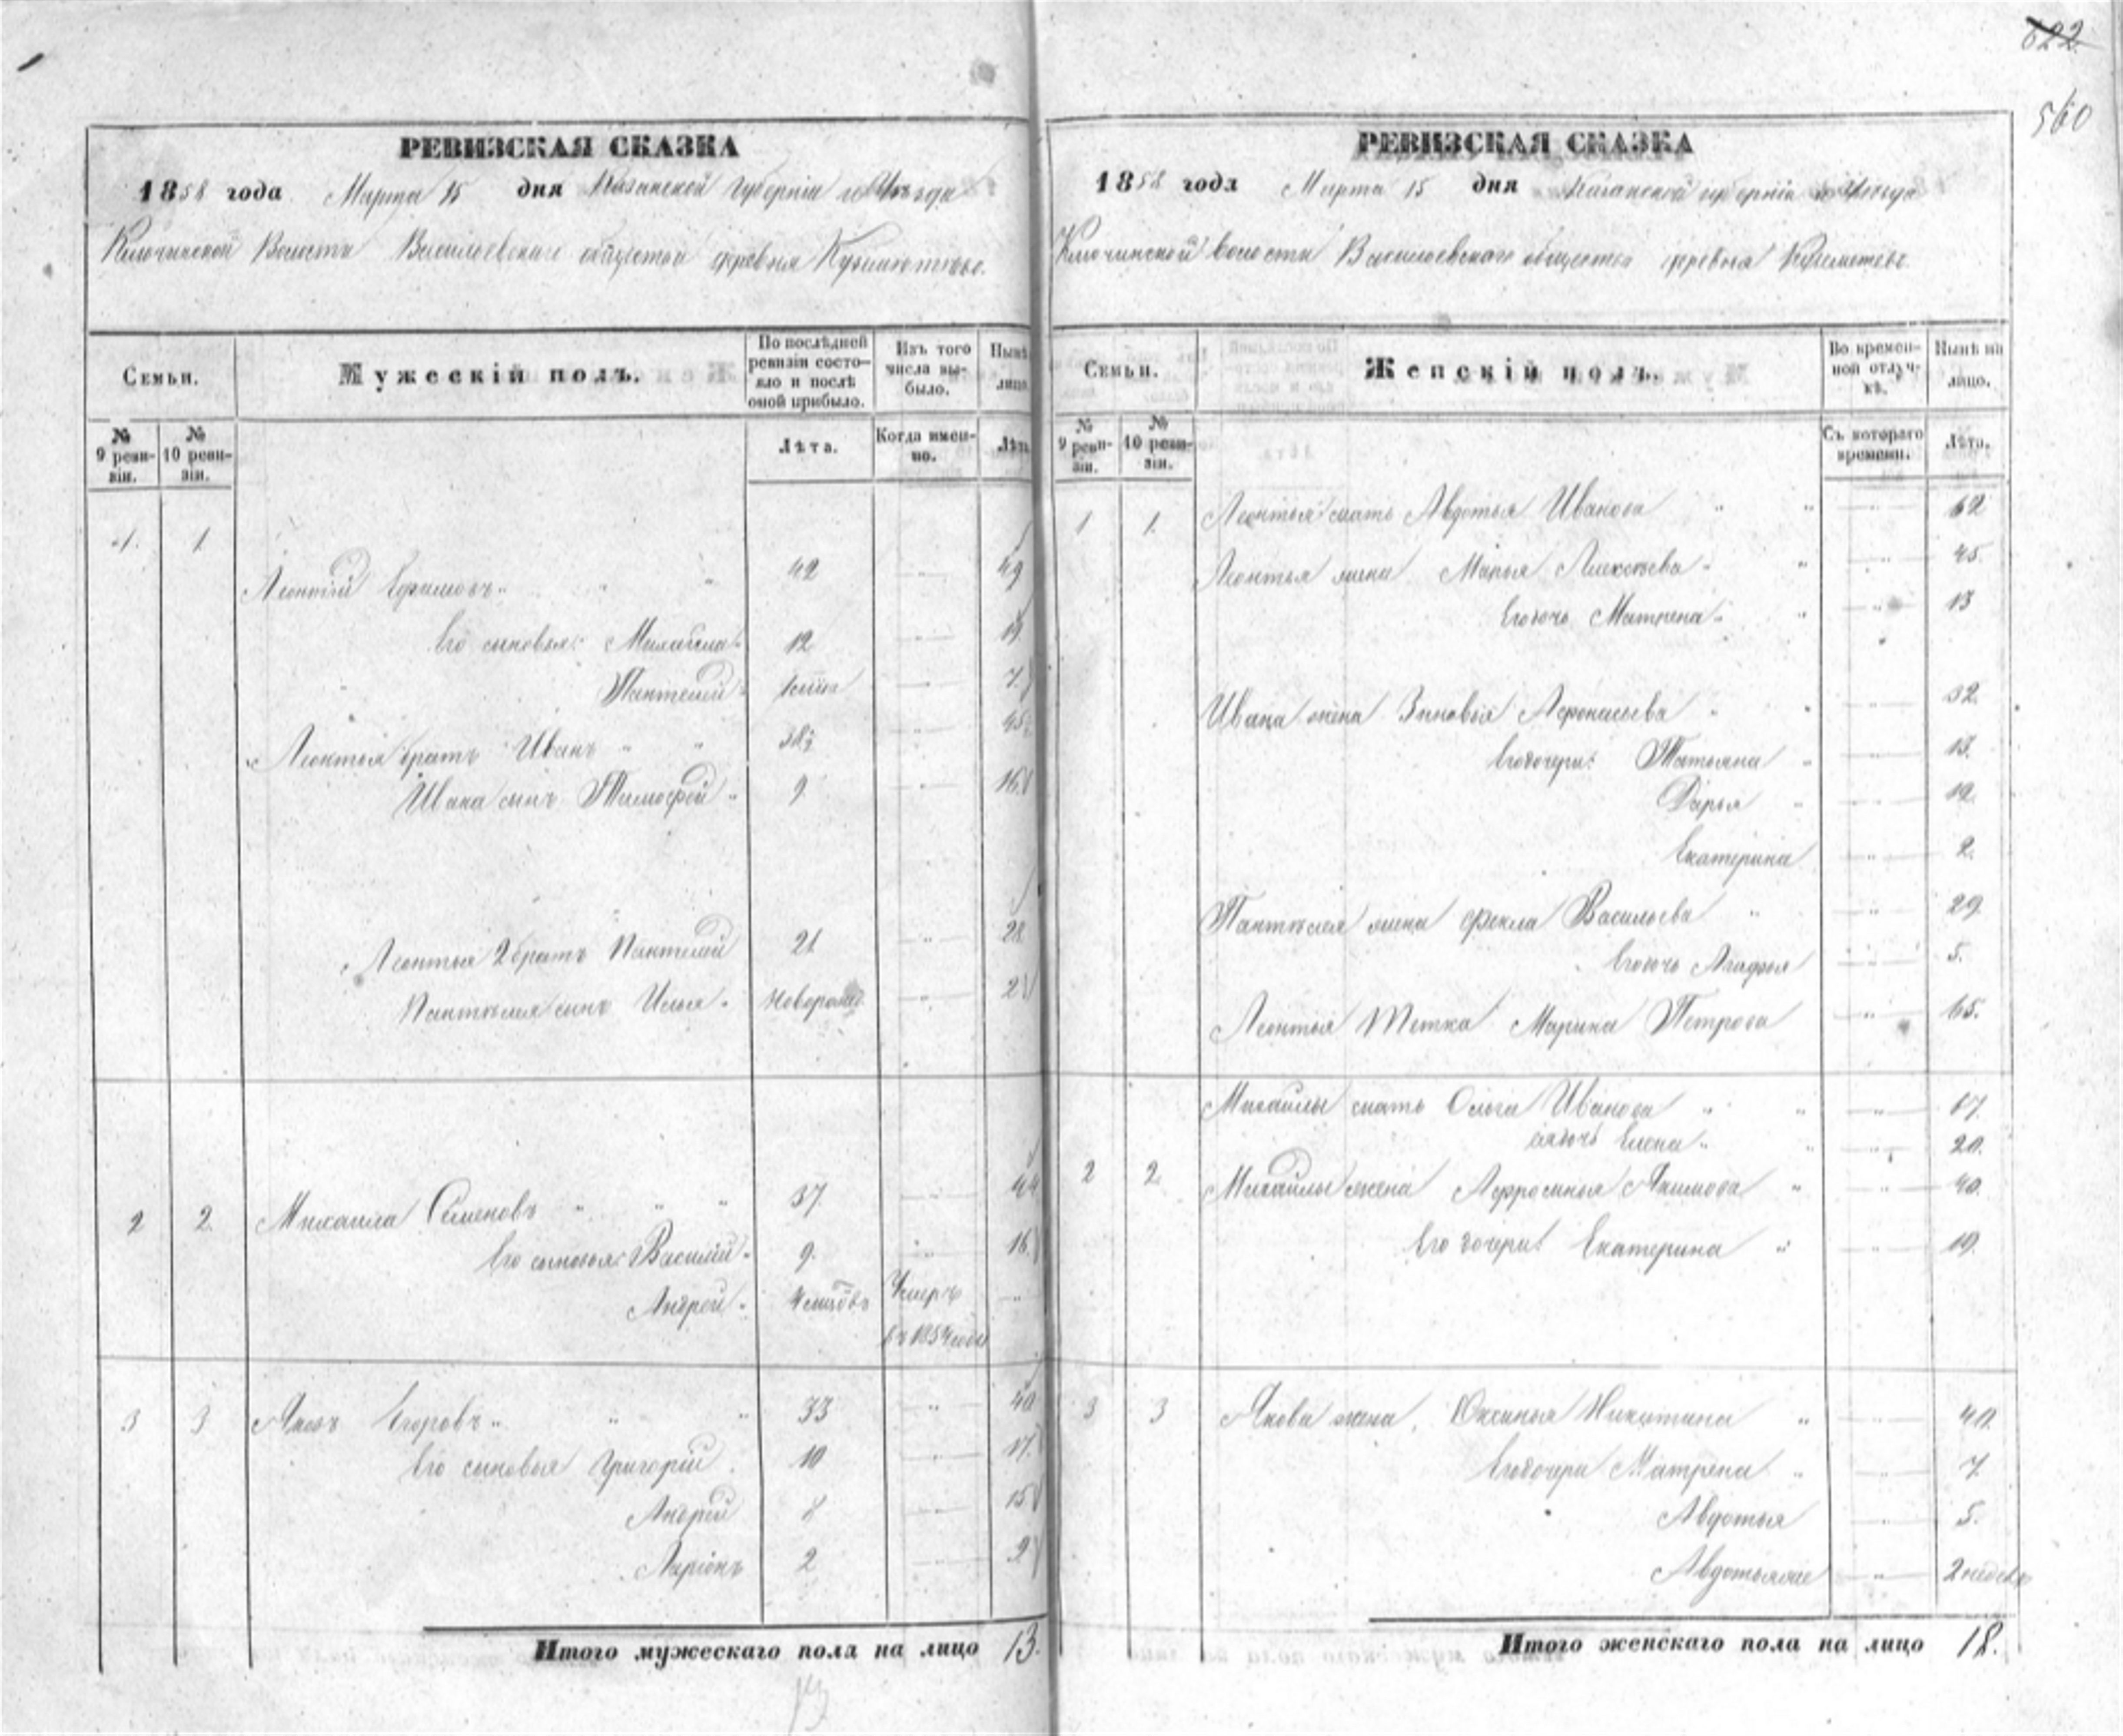 622
560
РЕВИЗСКАЯ СКАЗКА
1858 года Марта 15 дня Казанской Губерніи и Уѣзда
Ключинской Волости Васильевскаго общества деревня
Семьи.
Мужескій полъ.
По послѣдней ревизіи состояло и послѣ оной прибыло.
Изъ того числа выбыло.
Нынѣ лицо
№ 9 ревизіи.
№ 10 ревизіи.
Лѣта.
Когда именно.
Лѣта
1. 1.
Леонтій Ефимовъ " " " 42 " 49
Его сыновья: Михайла 12 " 19.
Пантелей 7.
Леонтья братъ Иванъ " " 38 " 45
Ивана сынъ Тимофей " 9. " 16
Леонтья 2 братъ Пантелей 21 " 28
Пантелея сынъ Илья " Новорожд " 2
2 2. Михаила Семеновъ " " " 37. " 44
Его сыновья: Василій " 9. " 16.
Андрей " Умеръ "
въ 1854 году
3 3 Яковъ Егоровъ " " " 33 " 40
Его сыновья Григорій 10 " 17.
Андрей 8 " 15
Ларіонъ 2 " 9
Итого мужескаго пола на лицо 13.
РЕВИЗСКАЯ СКАЗКА
1858 года Марта 15 дня Казанской губерніи и Уѣзда
Ключинской волости Васильевскаго общества деревня
Семьи.
Женскій полъ.
Во временной отлучкѣ.
Нынѣ на лицо.
№ 9 ревизіи.
№ 10 ревизіи.
Съ котораго времени.
Лѣта.
1 1. Леонтья мать Авдотья Иванова " " " 62
Леонтья жена Марья Алексѣева " " " 45.
Его дочь Матрена " " " 13
Ивана жена Зиновья Афонасьева " " " 32.
Его дочери: Татьяна " " 13.
Дарья " " 12
Екатерина " 2.
Пантелея жена Фекла Васильева " " 29.
Его дочь Агафья " 5.
Леонтья Тетка Марина Петрова " 65.
Михайлы мать Ольга Иванова " " " 67.
ея дочь Елена " " " 20.
2 2 Михайлы жена Афросинья Якимова " " 40.
Его дочери: Екатерина " " 19.
3 3 Якова жена Оксинья Никитина " " 40.
Его дочери Матрена " " 7
Авдотья " 5.
Авдотья же " 2 недель
Итого женскаго пола на лицо 18.